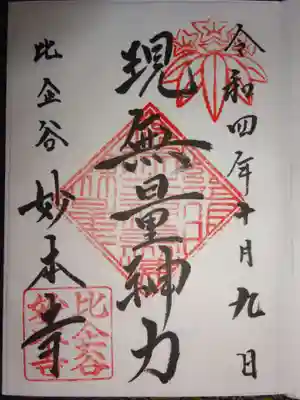 令和四年十月九日
現無量神力
比企谷
妙本寺
比企谷
妙本寺